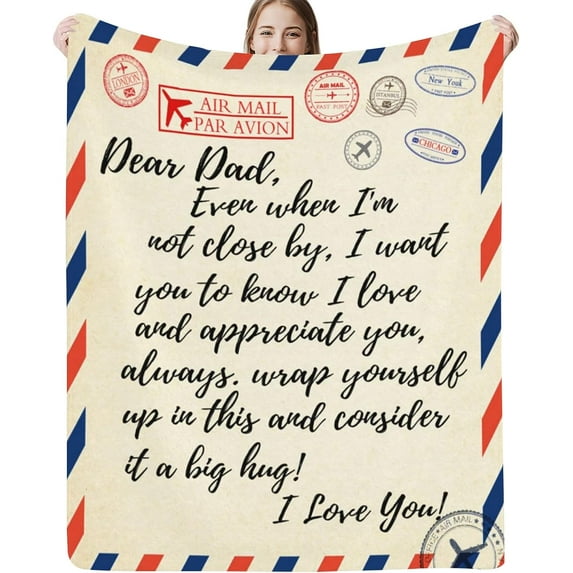 LONDON
AIR MAIL
PAR AVION
AIR MAIL
FAST POST
ISTANBUL
New York
CHICAGO
Dear Dad,
Even when I'm
not close by, I want
you to know I love
and appreciate you,
always. wrap yourself
up in this and consider
it a big hug!
I Love You!
AIR MAIL